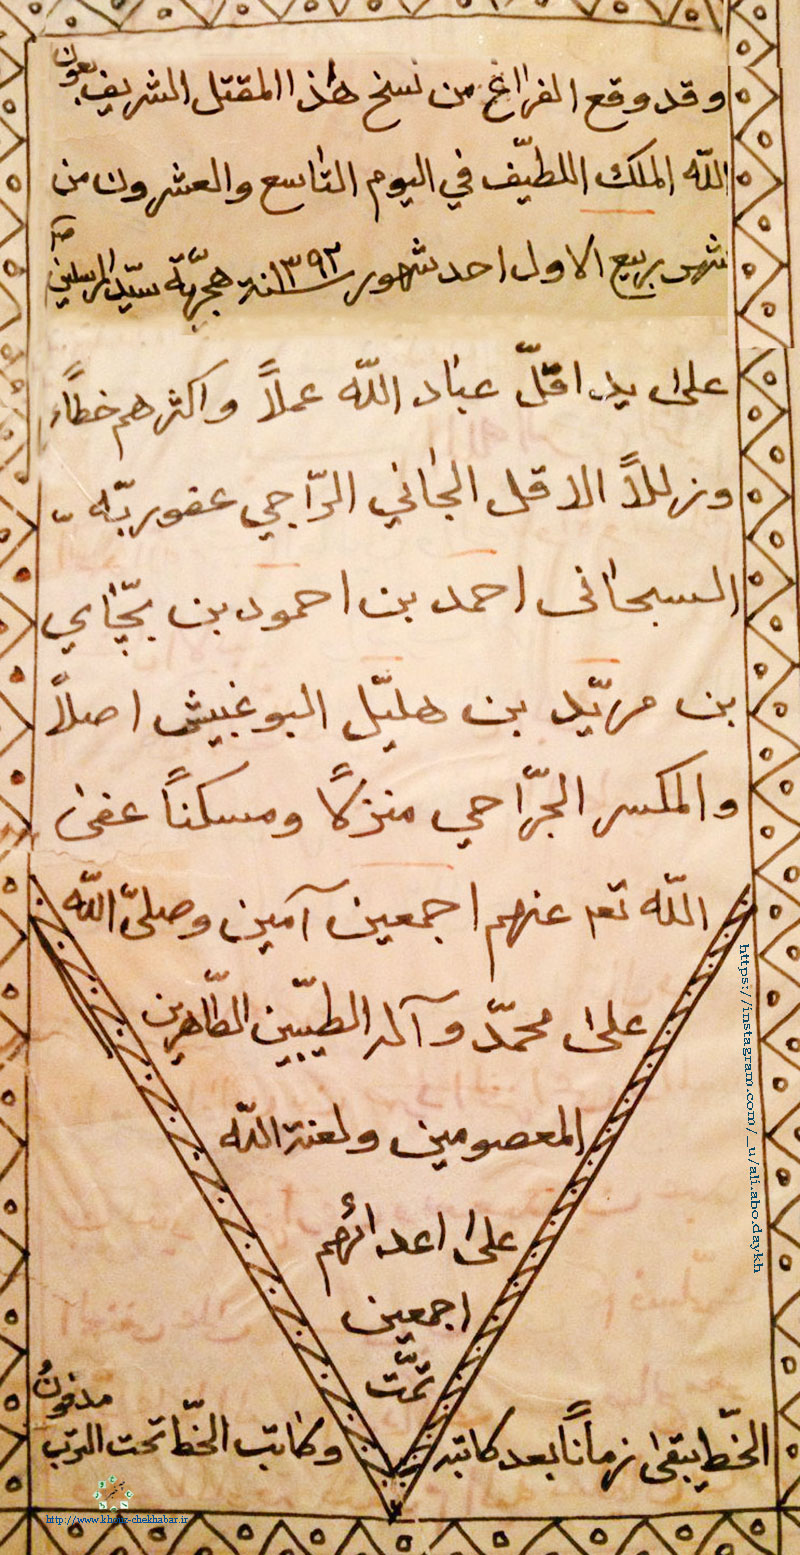 وقد وقع الفراغ من نسخ هٰذا المقتل الشريف بعون
اللّه الملك اللطيّف في اليوم التاسع والعشرون من
شهر ربيع الاول احد شهور سنة ١٣٩٢ هجريّة سيّد المرسلين ص
علىٰ يد اقلّ عباد اللّه عملاً واكثرهم خطاًء
وزللاً الاقل الجاني الرّاجي عفو ربّه
السبحانى احمد بن احمود بن بچّاي
بن مريّد بن هليّل البوغبيش اصلاً
والمكسر الجرّاحي منزلاً ومسكناً عفىٰ
اللّه تع عنهم اجمعين آمين وصلىّ اللّه
علىٰ محمّد وآله الطيبّين الطّاهرين
المعصومين ولعنة اللّه
علىٰ اعدائهم
اجمعين
تمّت
الخّط يبقىٰ زماناً بعد كاتبه وكاتب الخّط تحت الترب مدفونُ
https://instagram.com/_u/ali.abo.daykh
http://www.khouz-chekhabar.ir